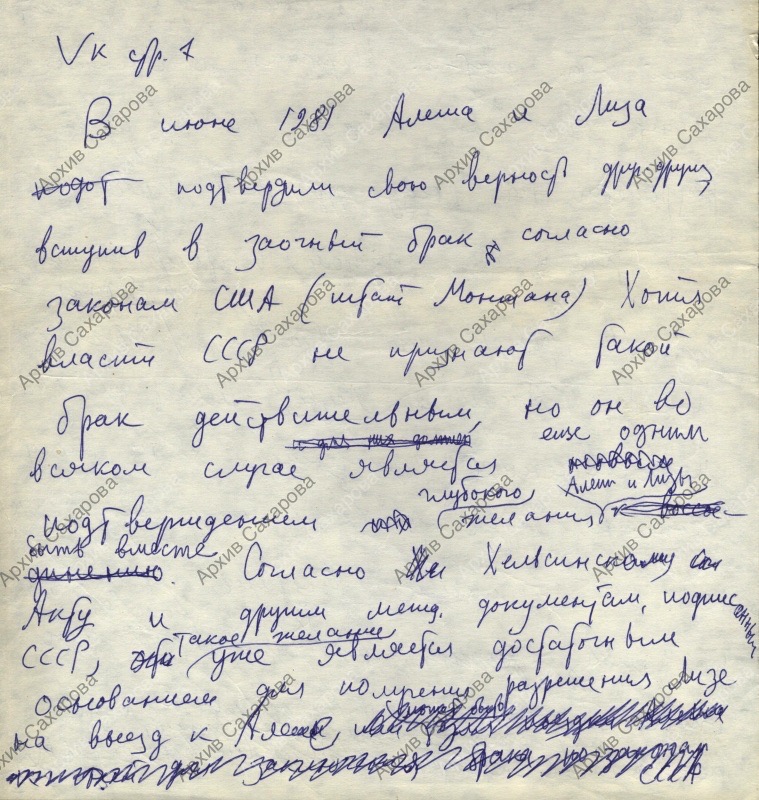 V к стр. 7
В июне 1981 Алеша и Лиза
подтвердили свою верность друг другу,
вступив в заочный брак согласно
законам США (штат Монтана) Хотя
власти СССР не признают такой
брак действительным, но он во
всяком случае является еще одним
подтверждением глубокого желания Алеши и Лизы
быть вместе. Согласно Хельсинкскому
Акту и другим межд. документам, подписанным
СССР, такое желание уже является достаточным
основанием для получения разрешения Лизе
на выезд к Алеше,
Архив Сахарова